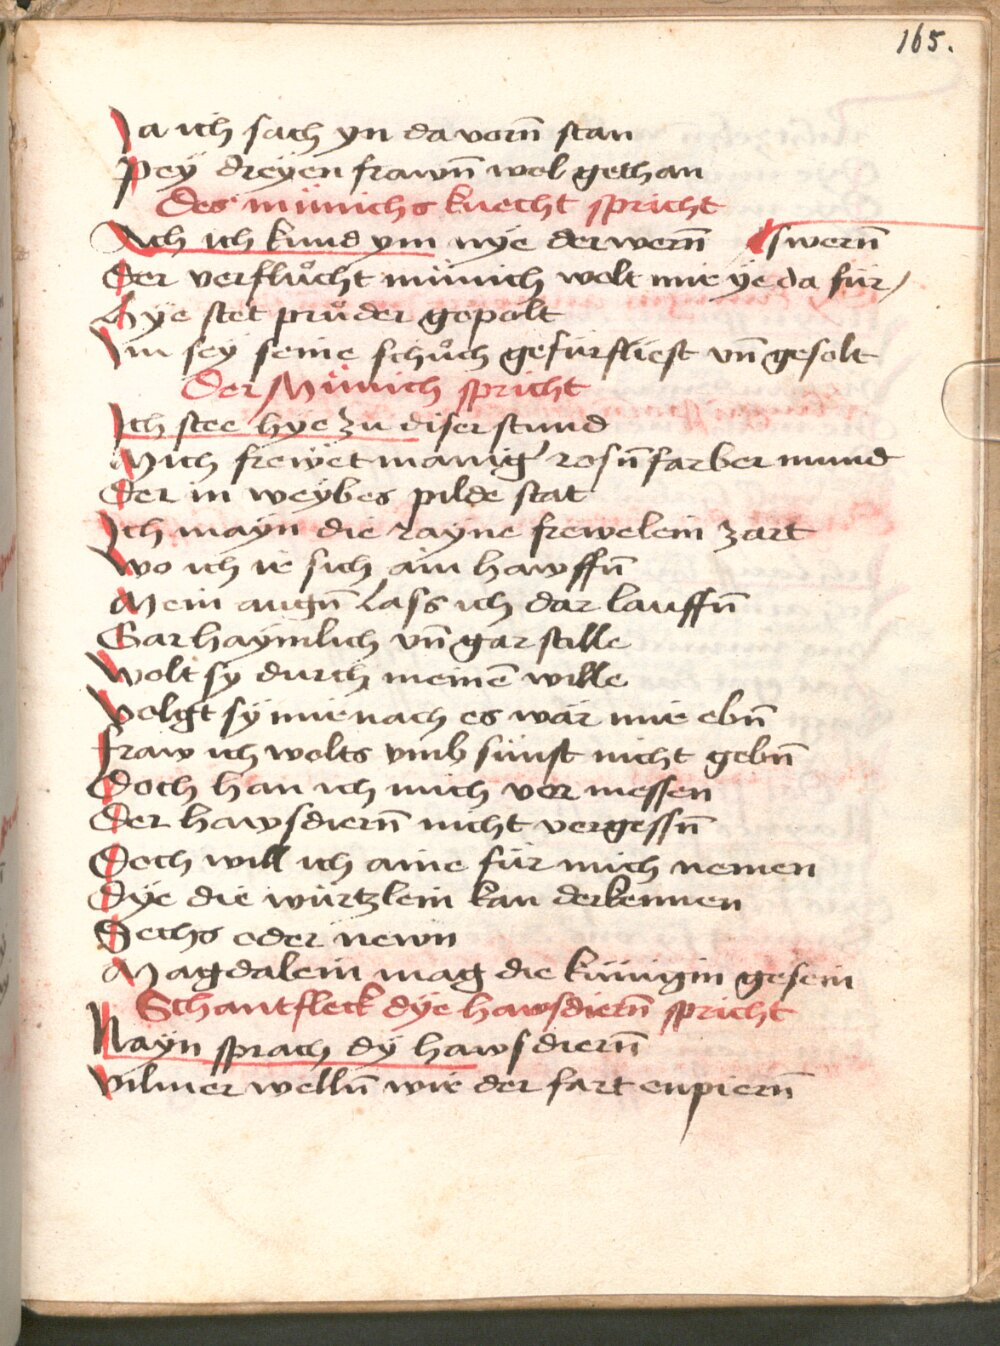 165.
Ja ich sach yn da vorn̄ stan
Pey dreyen frawn̄ wol gethan
Des münichs knecht spricht
Ach ich kund ym nye derwern̄ swern̄
Der verflůcht münich wolt mir ye da für
Hye stet průder gepolt
Im sey seine schůch gefürfliest vn̄ gesolt
Der Münich spricht
Ich stee hye zu diser stund
Mich frewet manig rosn̄farber mund
Der in weybes pilde stat
Ich mayn die rayne frewelein zart
Wo ich ir sich ain hawffn̄
Mein augn̄ lass ich dar lauffn̄
Gar haymlich vn̄ gar stille
Wolt sy durch meinen̄ wille
Volgt sy mir nach es wär mir ebn̄
Fraw ich wolts vmb sünst nicht gebn̄
Doch han ich mich vor messen
Der hawsdiern̄ nicht vergessn̄
Doch will ich aine für mich nemen
Dye die würtzlein kan derkennen
Sechs oder newn
Magdalein mag die künigin gesein
Schantfleck dye hawsdiern̄ spricht
Nayn sprach dy hawsdiern̄
Vilmer welln̄ wir der fart enpiern̄